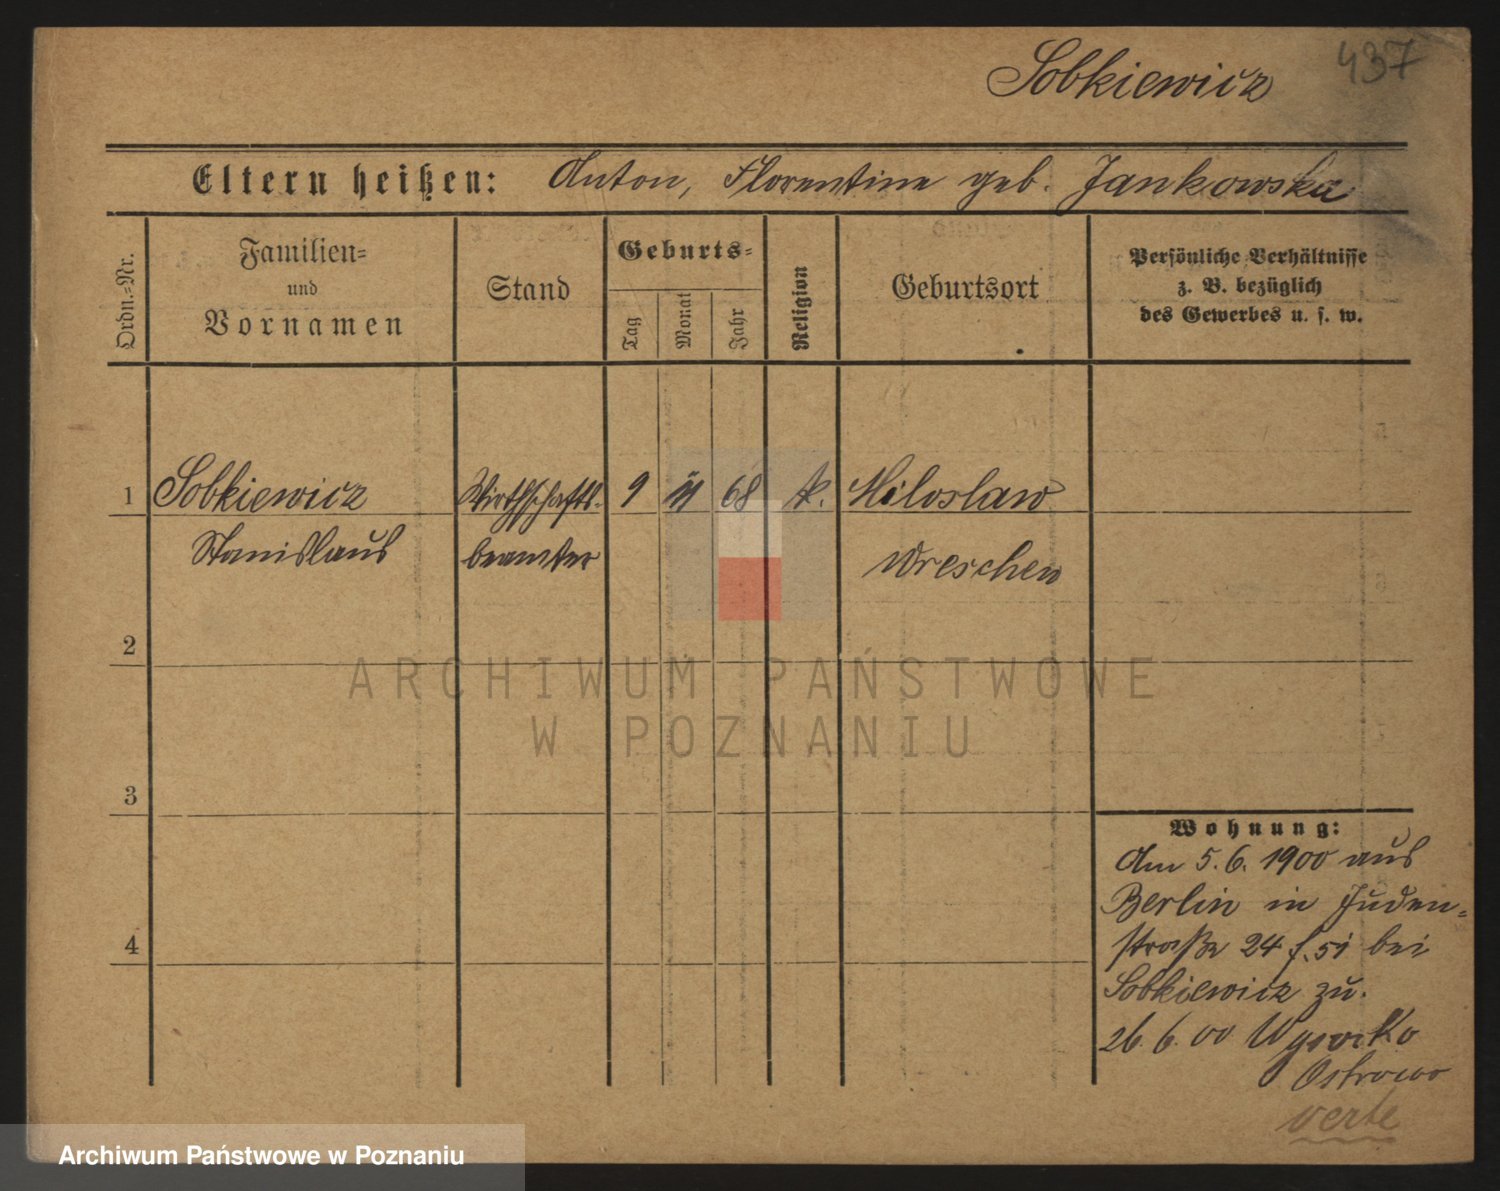 437
Sobkiewicz
Eltern heißen: Anton, Florentine geb. Jankowska
Ordn.-Nr.
Familien-
und
Vornamen
Stand
Geburts-
Tag
Monat
Jahr
Religion
Geburtsort
Persönliche Verhältnisse
z. B. bezüglich
des Gewerbes u. s. w.
1 Sobkiewicz Wirthschafts- 9 11 68 k. Miloslaw
Stanislaus beamter Wreschen
2
3
4
Wohnung:
Am 5.6.1900 aus
Berlin in Juden-
straße 24 f. 51 bei
Sobkiewicz zu.
26.6.00 Wysocko
Ostrowo
verte
ARCHIWUM PAŃSTWOWE
W POZNANIU
Archiwum Państwowe w Poznaniu